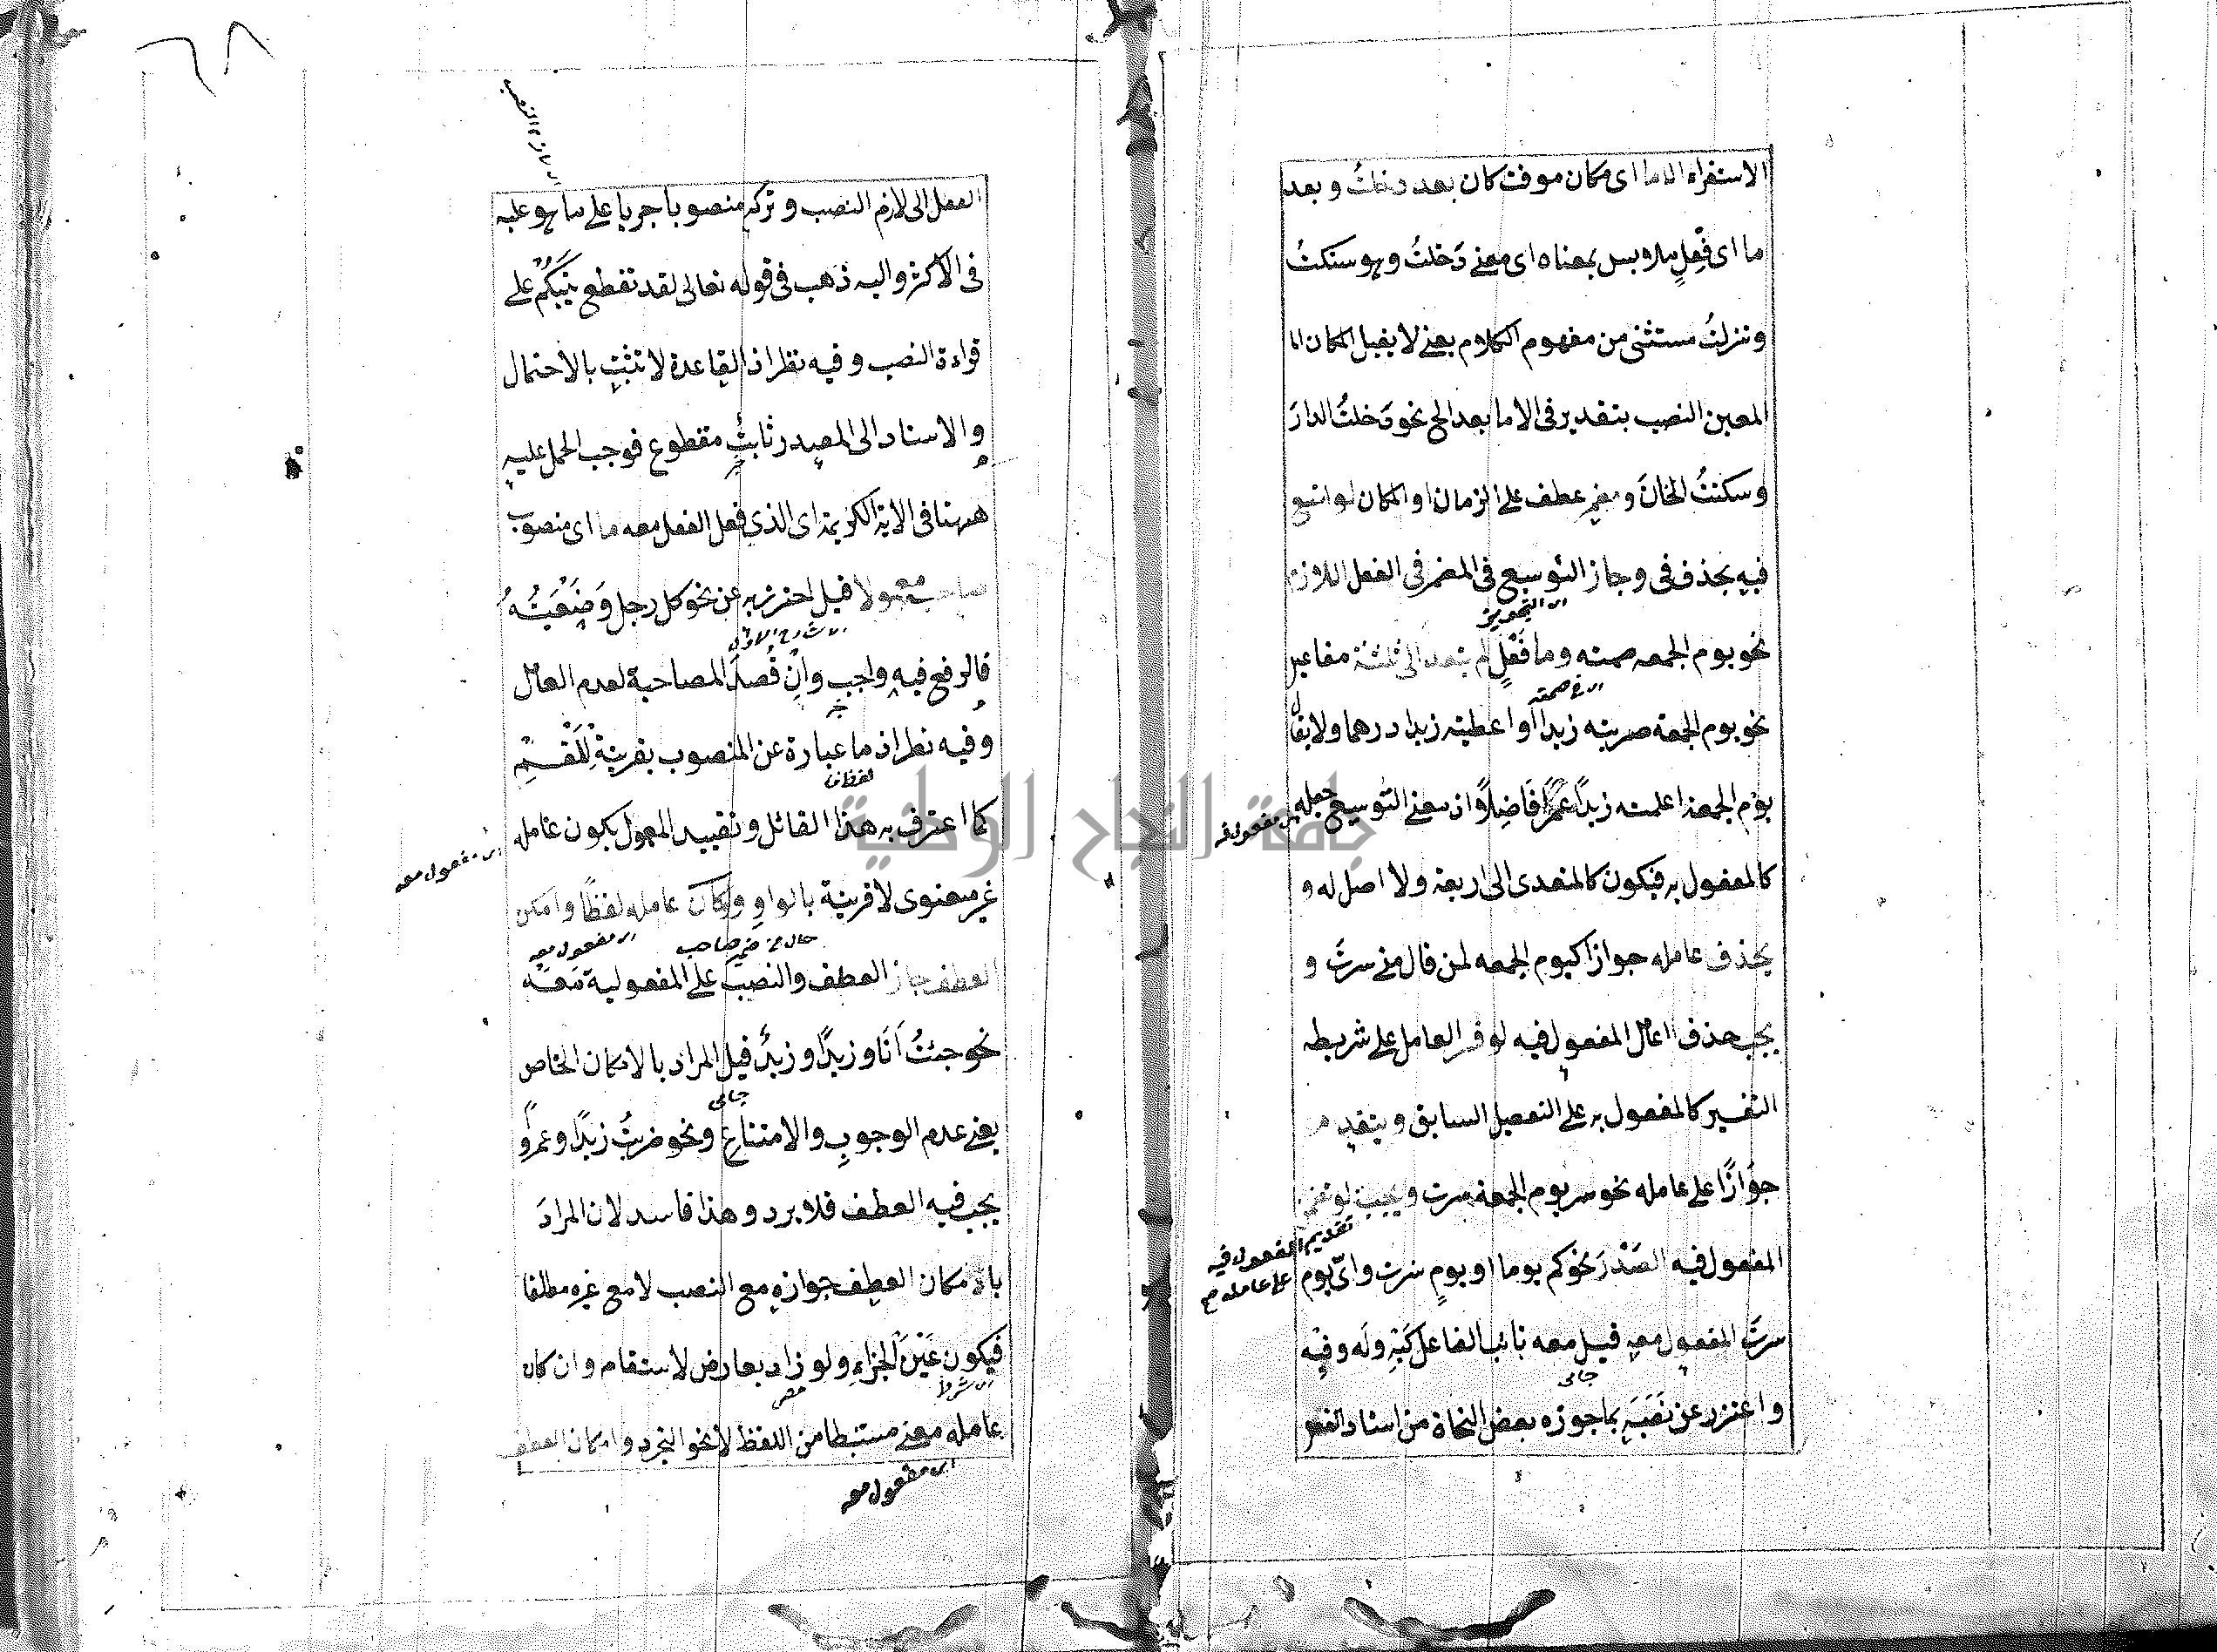 الاستقراء الا ما اى مكان موقت كان بعد دخلتُ وبعد
ما اى فِعْلٍ ملابس بمعناه اى معنى دَخلتُ وهو سكنتُ
ونزلتُ مستثنى من مفهوم الكلام يعنى لا يقبل المكان
المعين النصب بتقدير فى الا ما بعد الخ نحو دَخلتُ الدارَ
وسكنتُ الخانَ عطف على الزمان او المكان لو اتسع
فيه بحذف فى وجاز التوسيع فى المضمر فى الفعل اللازم
اى التجويز
نحو يوم الجمعه صمته وما فَعْلٍ لم يتعد الى ثلثة مفاعيل
اى فى صمته
نحو يوم الجمعة ضربته زيداً او اعطيته زيدا درهما ولا يقال
يوم الجمعة اعلمته زيداً عَمْراً فَاضِلاً اذ معنى التوسيع جعله
اى مفعول فيه
كالمفعول به فيكون كالمتعدى الى اربعة ولا اصل له و
يحذف عامله جوازاً كيوم الجمعه لمن قال متى سرتَ و
يجب حذف عامل المفعول فيه لو فسر العامل على شريطه
التفسير كالمفعول به على التفصيل السابق ويتقدم
جوَازًا على عامله نحو يوم الجمعة سرت ويجب لو تضمن
تقديم المفعول فيه
على عامله صح
المفعول فيه الصَدْرَ نحو كم يوما او يومٍ سرت واىّ يوم
سرتَ المفعول معه قيل معه نائب الفاعل كَبِهِ ولَه وفيْه
جامى
واعتذر عن نَصَبَهِ بما جوزه بعض النحاة من اسناد الفعل
٦٨
الفعل الى لازم النصب وتركه منصوبا جريا على ما هو عليه
فى الأكثر واليه ذهب فى قوله تعالى لقد تقطع بَيْنَكُمْ على
قراءة النصب وفيه نظر اذ القاعدة لا تثبت بالاحتمال
والاسناد الى المصدر ثابتٌ مقطوع فوجب الحمل عليه
ههنا فى الاية الكريمة اى الذى فعل الفعل معه ما اى منصوب
صاحب معمولا قيل احترز به عن نحو كل رجل وَضَيْعَتُهُ
فالرفع فيه واجب وانْ قُصدَ المصاحبة لعدم العامل
وفيه نظر اذ ما عبارة عن المنصوب بقرينة لِلْقَسِمْ
كما اعترف به هذا القائل وتقييد المعمول بكون عامله
اى مفعول معه
غير معنوى لا قرينة بالواو وكان عامله لفظًا وامكن
حال من ضمير صاحب
اى مفعول معه
العطف جاز العطف والنصب على المفعولية مَعَهُ
نحو جئتُ أنَا وزيداً وزيدٌ قيل المراد بالامكان الخاص
جامى
يعنى عدم الوجوبِ والامتناعِ ونحو ضربتُ زيدًا وعمرًو
يجب فيه العطف فلا يرد وهذا فاسد لان المرادَ
بالامكان العطف جوازه مع النصب لا مع غيره مطلقا
فيكون عَيْنَ الجزاءِ ولو زاد بعارض لاستقام وان كان
اى شرط
عامله معنى مستنبطا من اللفظ لا نحو التجرد وامكان العطف
اى مفعول معه
جامعة النجاح الوطنية